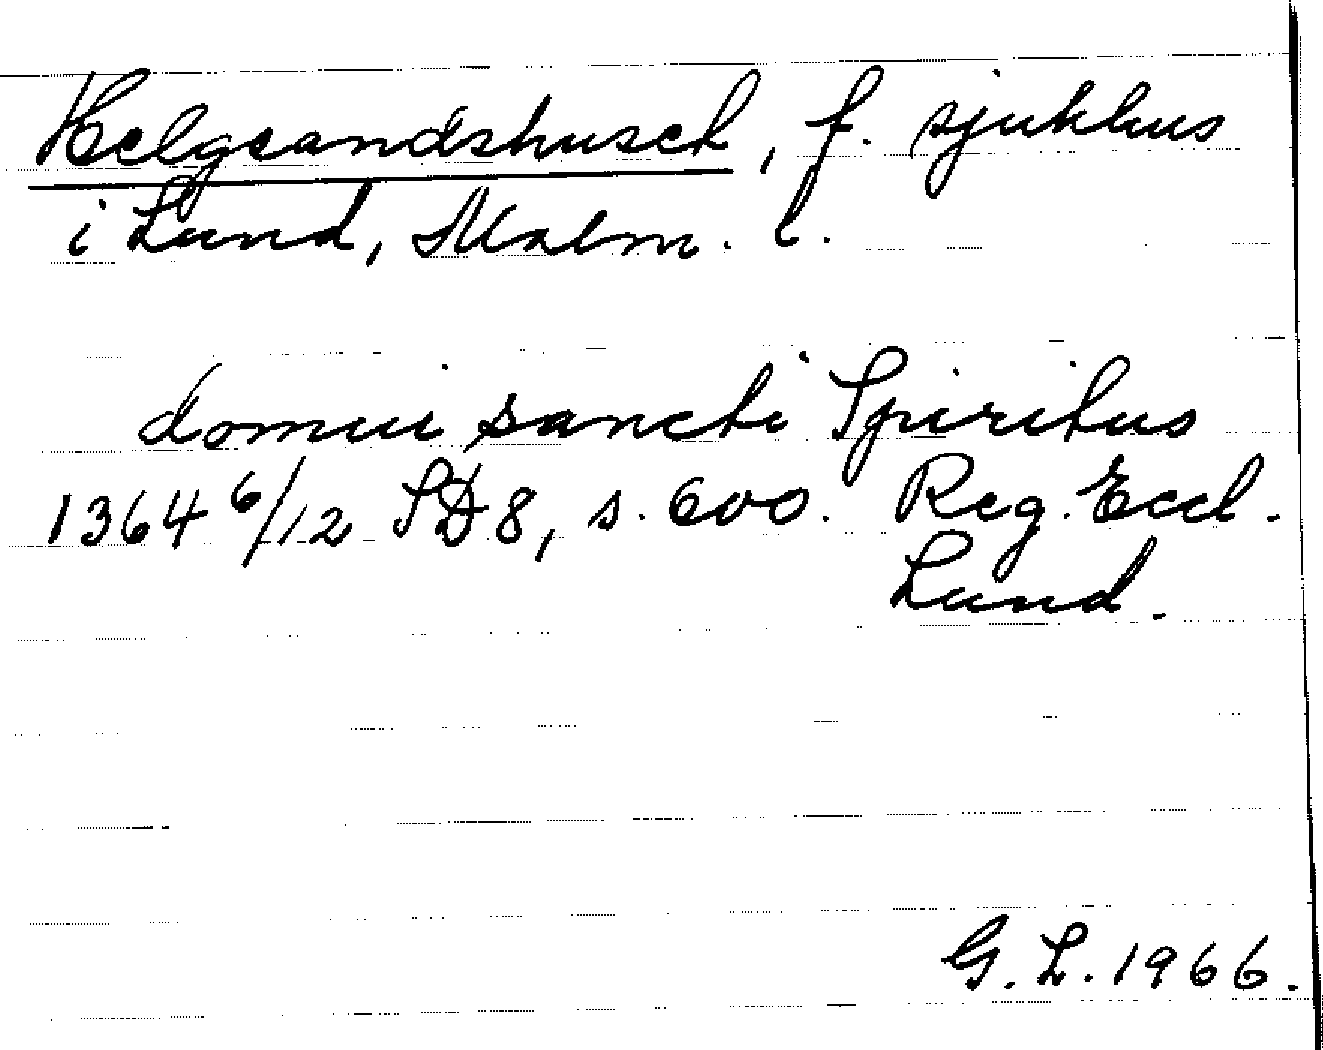 Helgeandshuset, f. sjukhus
i Lund, Malm. l.
domui sancti Spiritus
1364 6/12 SD 8, s. 600. Reg. Eccl.
Lund.
G. L. 1966.